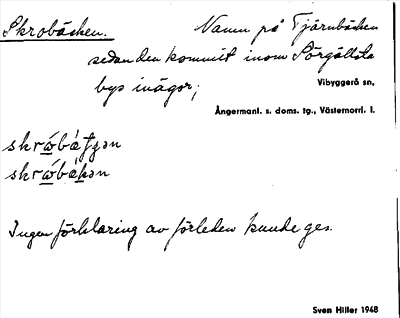 Skrobäcken. Namn på Tjärnbäcken
sedan den kommit inom Sörgållsta
bys inägor;
Vibyggerå sn,
Ångermanl. s. doms. tg., Västernorrl. l.
Ingen förklaring av förleden kunde ges.
Sven Hiller 1948